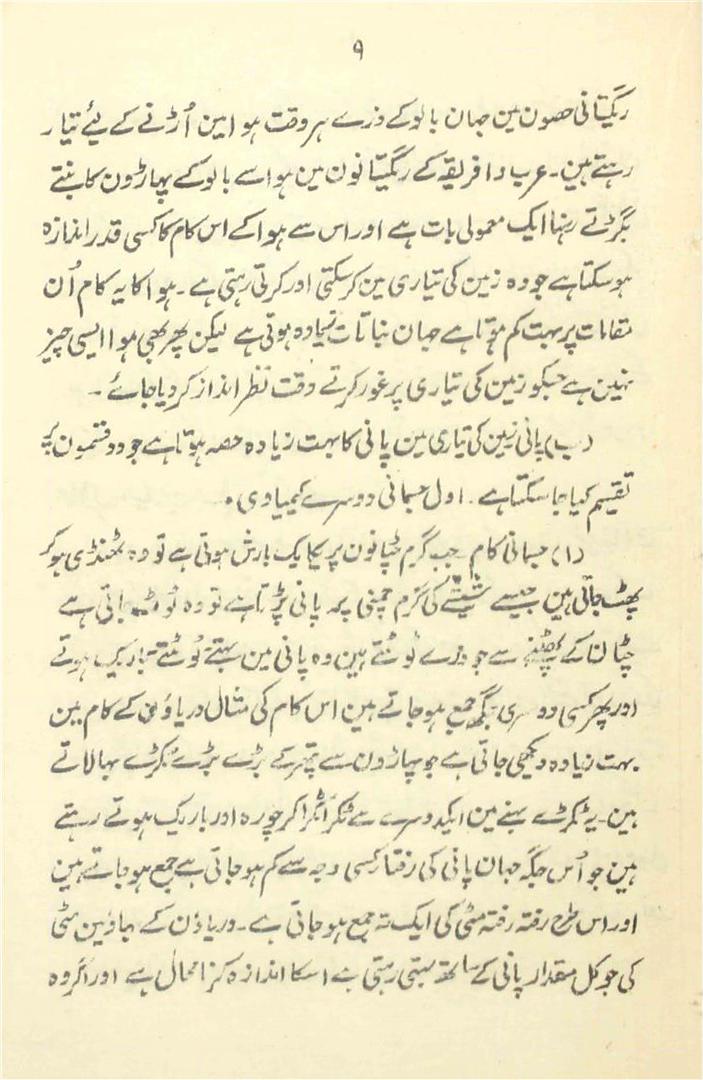 ۹
ریگستانی حصون مین جہان بالو کے ذرے ہر وقت ہوا مین اُڑنے کے لیٔے تیار
رہتے ہین ۔ عرب و افریقہ کے ریگستانون مین ہوا سے بالو کے پہاڑون کا بنتے
بگڑتے رہنا ایک معمولی بات ہے اور اس سے ہوا کے اس کام کا کسی قدر اندازہ
ہو سکتا ہے جو وہ زمین کی تیاری مین کر سکتی اور کرتی رہتی ہے ۔ ہوا کا یہ کام اُن
مقامات پر بہت کم ہوتا ہے جہان نباتات زیادہ ہوتی ہے لیکن پھر بھی ہوا ایسی چیز
نہین ہے جسکو زمین کی تیاری پر غور کرتے وقت نظر انداز کر دیا جائے ۔
(ب) پانی زمین کی تیاری مین پانی کا بہت زیادہ حصہ ہوتا ہے جو دو قسمون پر
تقسیم کیا جا سکتا ہے ۔ اول جسمانی دوسرے کیمیاوی ۔
(۱) جسمانی کام جب گرم چٹانون پر یکایک بارش ہوتی ہے تو وہ ٹھنڈی ہو کر
پھٹ جاتی ہین جیسے شیشے کی گرم چمنی پر پانی پڑتا ہے تو وہ ٹوٹ جاتی ہے
چٹانا کے پھٹنے سے جو ذرے ٹوٹتے ہین وہ پانی مین بہتے ٹوٹتے باریک ہوتے
اور پھر کسی دوسری جگہ جمع ہو جاتے ہین اس کام کی مثال دریاؤن کے کام مین
بہت زیادہ دیکھی جاتی ہے جو پہاڑون سے پتھر کے بڑے بڑے ٹکڑے بہا لاتے
ہین ۔ یہ ٹکڑے بہنے مین ایکدوسرے سے ٹکرا ٹکرا کر چورہ اور باریک ہوتے رہتے
ہین جو اُس جگہ جہان پانی کی رفتار کسی وجہ سے کم ہو جاتی ہے جمع ہو جاتے ہین
اور اس طرح رفتہ رفتہ مٹی کی ایک تہ جمع ہو جاتی ہے ۔ دریاؤن کے بہاؤ مین مٹی
کی جو کل مقدار پانی کے ساتھ بہتی رہتی ہے اسکا اندازہ کرنا محال ہے اور اگر وہ